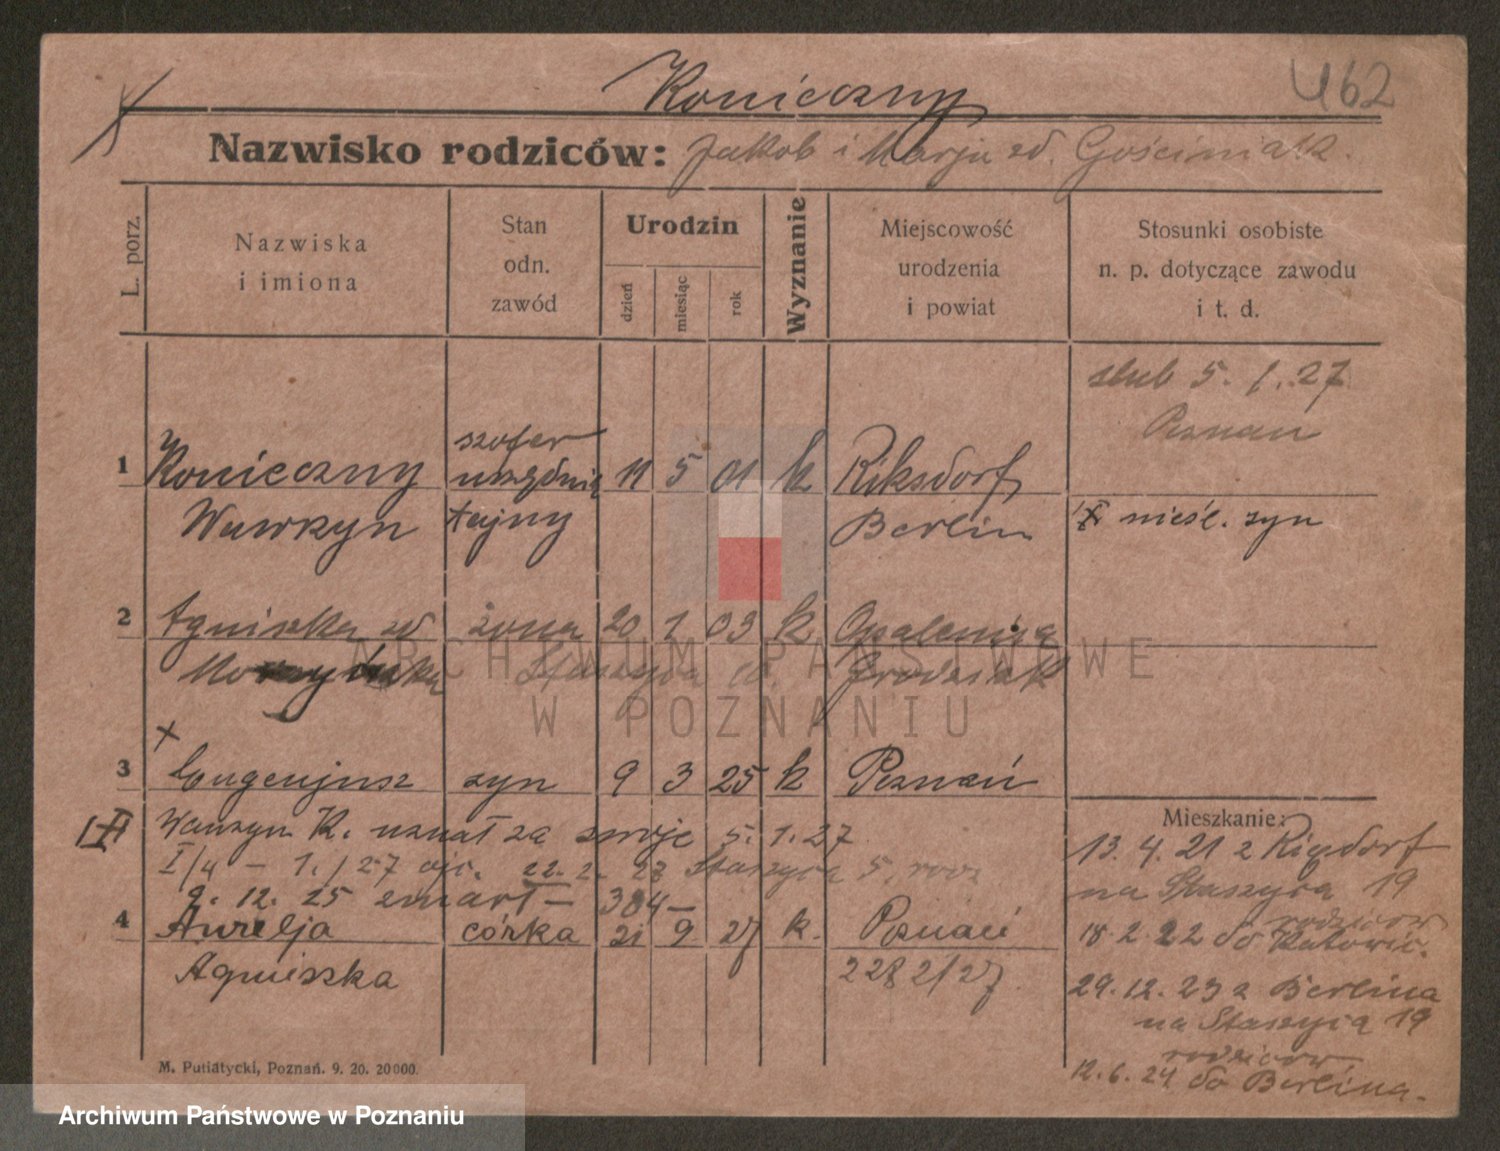 Konieczny
462
Nazwisko rodziców: Jakob i Marja zd. Gościniak.
L. porz.
Nazwiska i imiona
Stan odn. zawód
Urodzin
dzień
miesiąc
rok
Wyznanie
Miejscowość urodzenia i powiat
Stosunki osobiste n. p. dotyczące zawodu i t. d.
ślub 5. 1. 27
Poznań
1 Konieczny szofer 11 5 01 k Riksdorf
Wawrzyn tajny Berlin nieśl. syn
2 Agnieszka zd żona 20 1 03 k Opalenica
Grodzisk
ARCHIWUM PAŃSTWOWE
W POZNANIU
3 Eugenjusz syn 9 3 25 k Poznań
Wawrzyn K. uznał za swoje 5. 1. 27
I/4 – 1. 127 ojc. 22. 2. 28 Staszyca 5,
9. 12. 25 zmarł – 384 –
4 Aurelja córka 21 9 27 k. Poznań
Agnieszka 2282/27
Mieszkanie:
13. 4. 21 z Rixdorf
na Staszyca 19
rodziców
18. 2. 22 do Katowic.
29. 12. 23 z Berlina
na Staszyca 19
rodziców
12. 6. 24 do Berlina.
M. Putiatycki, Poznań. 9. 20. 20000.
Archiwum Państwowe w Poznaniu